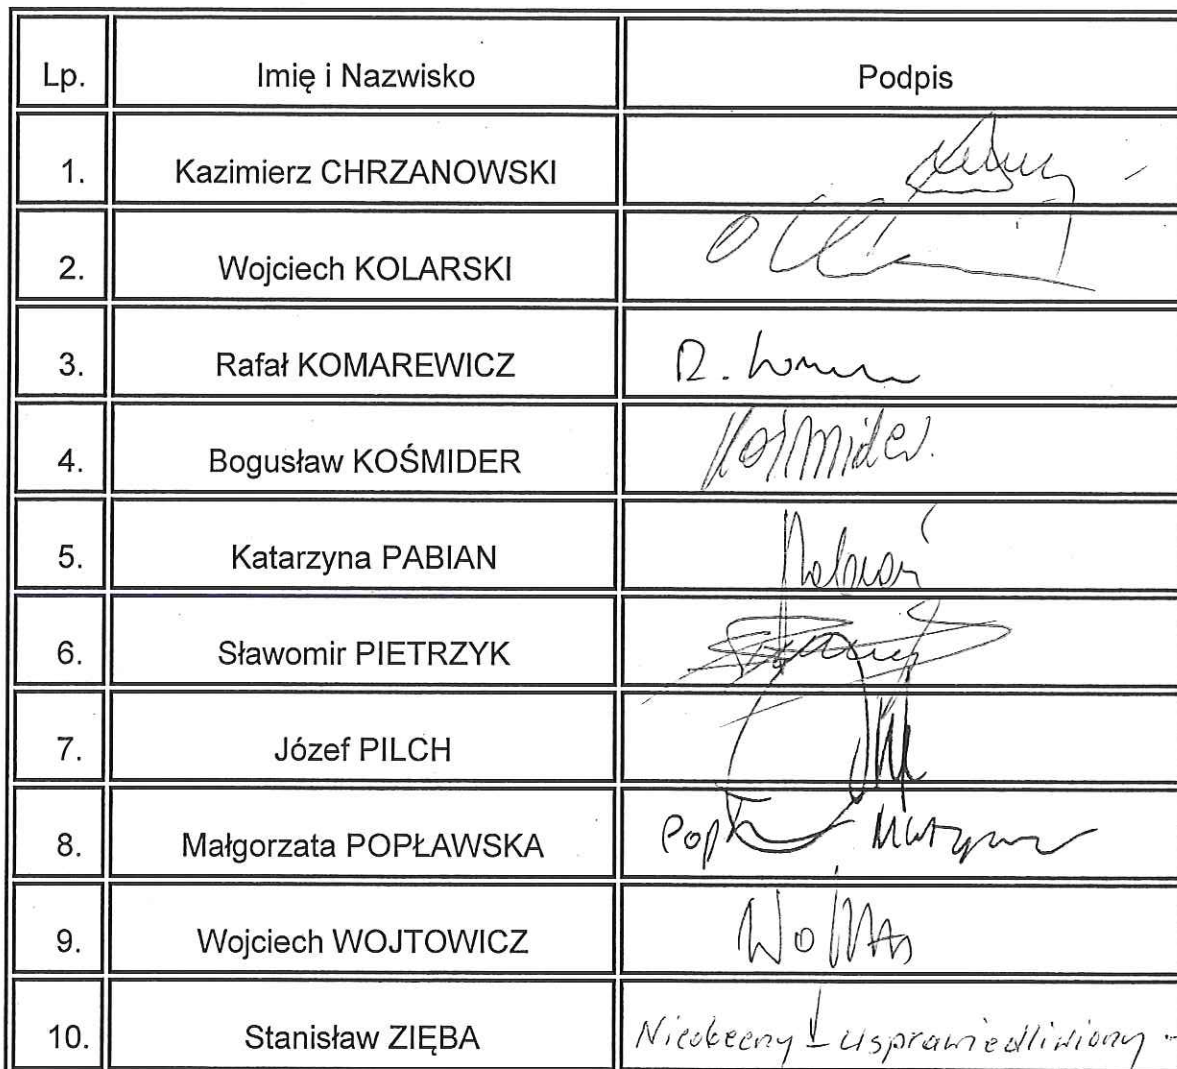 Lp. Imię i Nazwisko Podpis
1. Kazimierz CHRZANOWSKI
2. Wojciech KOLARSKI
3. Rafał KOMAREWICZ R.
4. Bogusław KOŚMIDER Kośmider
5. Katarzyna PABIAN Pabian
6. Sławomir PIETRZYK
7. Józef PILCH
8. Małgorzata POPŁAWSKA
9. Wojciech WOJTOWICZ
10. Stanisław ZIĘBA Nieobecny usprawiedliwiony -